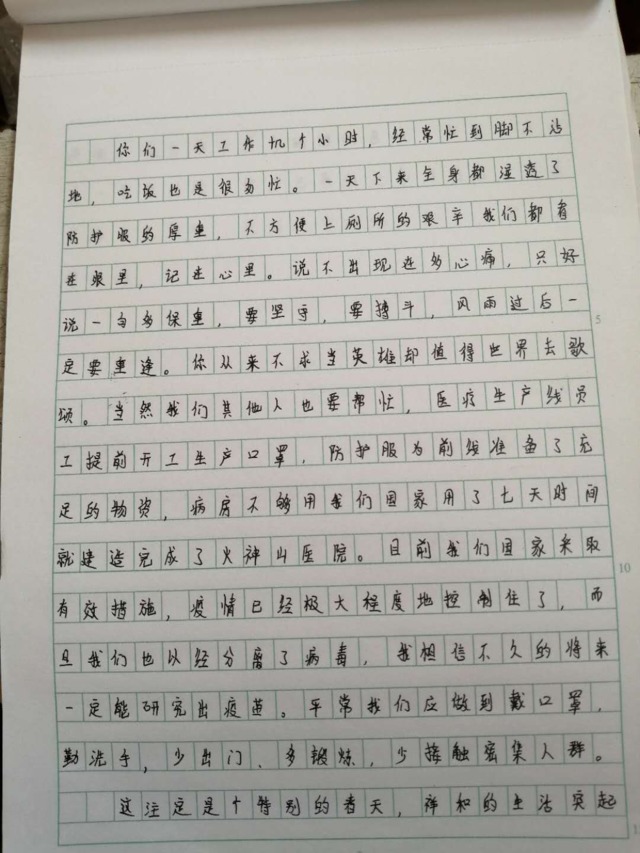 你们一天工作九个小时，经常忙到脚不沾
地，吃饭也是很匆忙。一天下来全身都湿透了
防护服的厚重，不方便上厕所的艰辛我们都看
在眼里，记在心里。说不出现在多心痛，只好
说一句多保重，要坚守，要搏斗，风雨过后一
定要重逢。你从来不求当英雄却值得世界去歌
颂。当然我们其他人也要帮忙，医疗生产线员
工提前开工生产口罩，防护服为前线准备了充
足的物资，病房不够用我们国家用了七天时间
就建造完成了火神山医院。目前我们国家采取
有效措施，疫情已经极大程度地控制住了，而
且我们也以经分离了病毒，我相信不久的将来
一定能研究出疫苗。平常我们应做到戴口罩，
勤洗手，少出门、多锻炼，少接触密集人群。
这注定是个特别的春天，祥和的生活突起
5
10